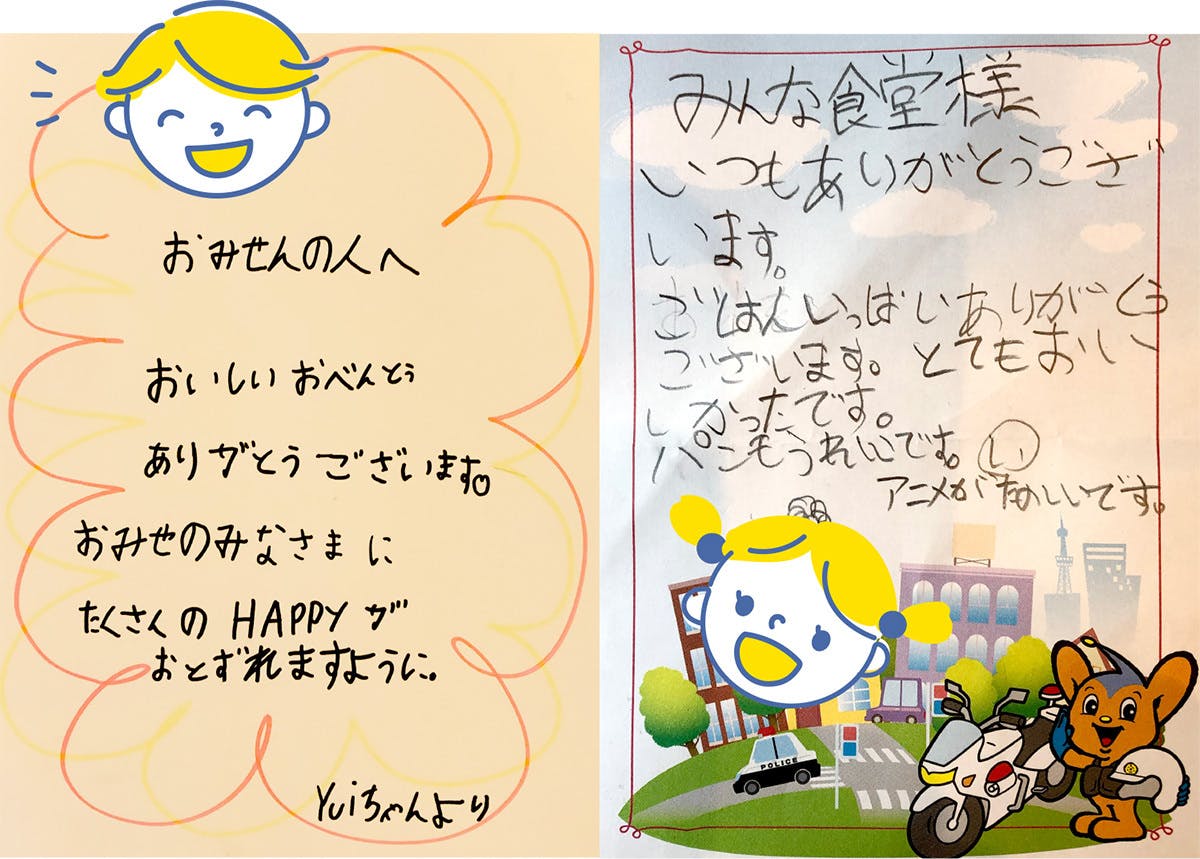 おみせんの人へ
おいしいおべんとう
ありがとうございます。
おみせのみなさまに
たくさんの HAPPY が
おとずれますように。
Yuiちゃんより
みんな食堂様
いつもありがとうござ
います。
ごはんいっぱいありがとう
ございます。とてもおい
しかったです。
パンもうれしいです。い
アニメがたのしいです。
POLICE